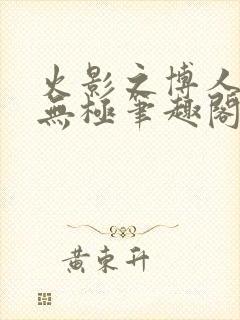 火影之博人
無極筆趣閣
黃東升